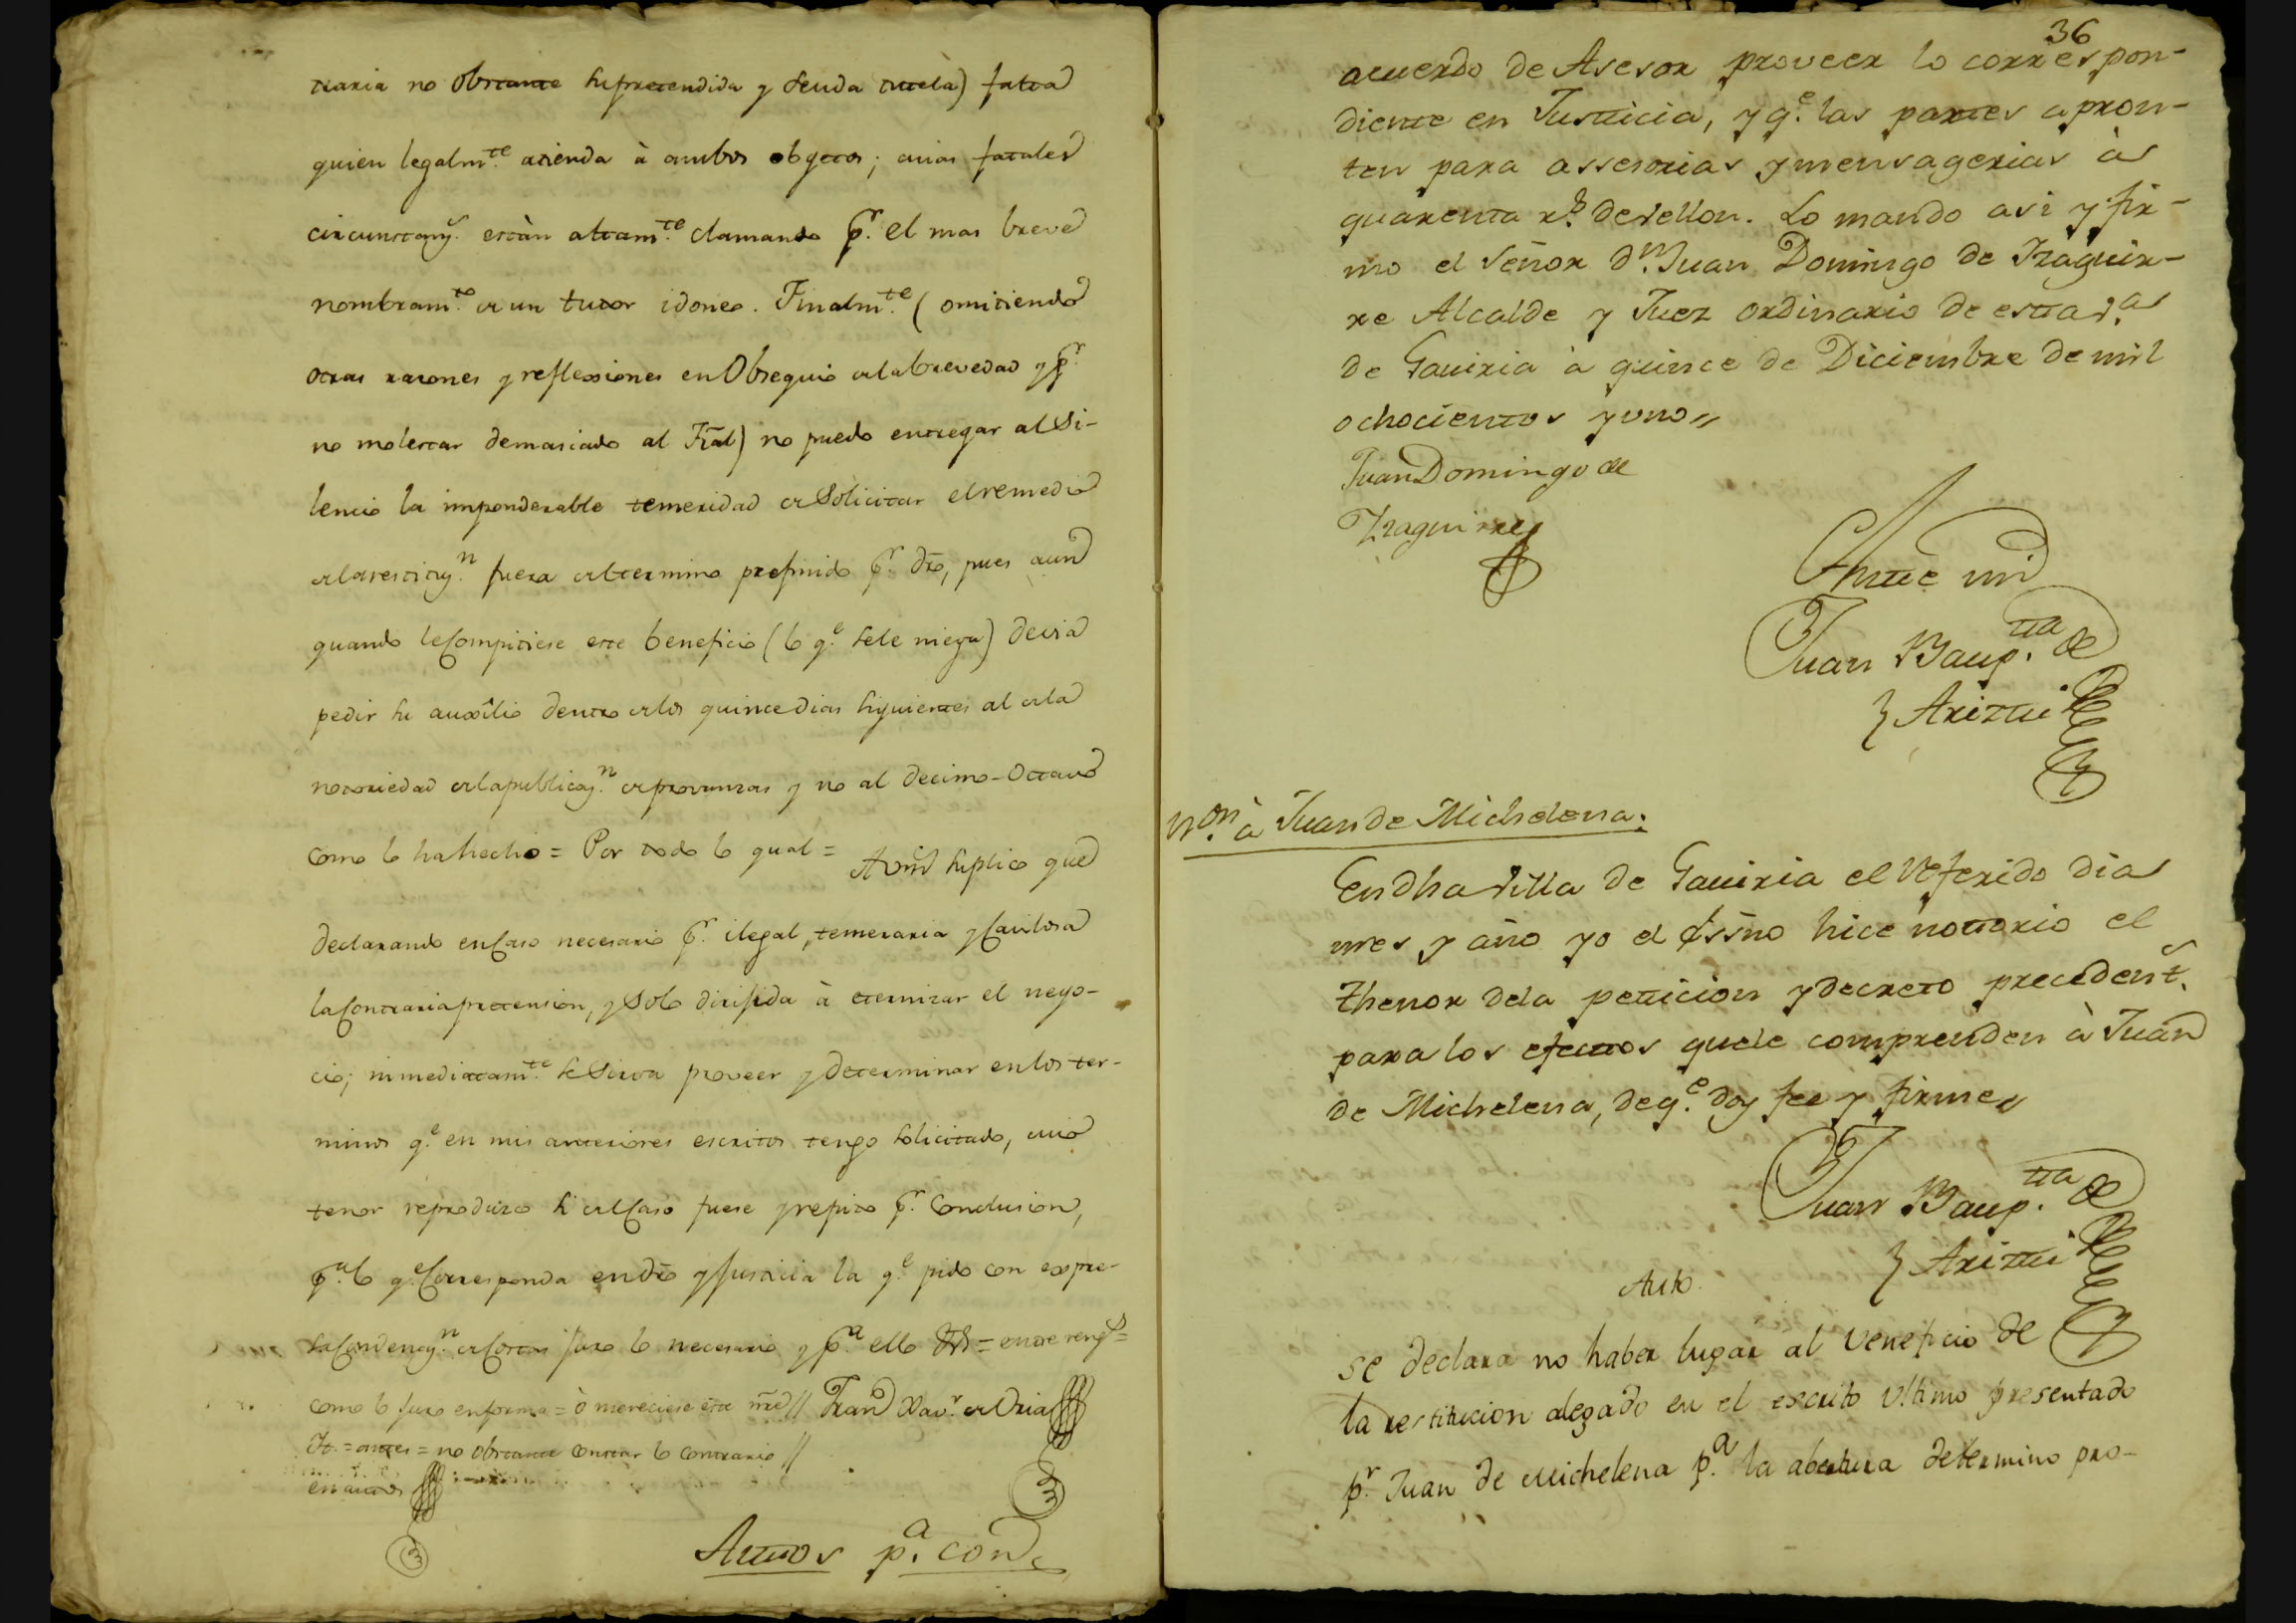 traria no obstante su pretendida y seuda tutela) falta
quien legalm.te atienda à ambos obgetos; cuias fatales
circunstanş. estàn altam.te clamando p.r el mas breve
nombram.to de un tutor idoneo. Finalm.te (omitiendo
otras razones y reflexiones en Obsequio de la brevedad y p.r
no molestar demasiado al Tral) no puedo entregar al Si-
lencio la imponderable temeridad de Solicitar el remedio
de la restituş.n fuera del termino prefinido p.r dro, pues aun
quando le Compitiese este beneficio (lo q.e se le niega) devia
pedir su auxîlio dentro de los quince dias siguientes al de la
notoriedad de la publicaş.n de provanzas y no al decimo-Octavo
como lo ha hecho = Por todo lo qual =
A Vmd suplico que
declarando en Caso necesario p.r ilegal, temeraria y Cavilosa
la Contraria pretension, y Solo dirijida à eternizar el nego-
cio; inmediatam.te se Sirva proveer y determinar en los ter-
minos q.e en mis anteriores escritos tengo solicitado, cuio
tenor reproduzco si del Caso fuese y repito p.r Conclusion,
p.a lo q.e Corresponda en dro y justicia la q.e pido con expre-
sa Condenaş.n de Costas juro lo necesario y p.a ello = entre rengs =
como lo juro en forma = ò mereciese este mrd // Fran.co Xav.r de Oria
= antes = no obstante constar lo contrario //
Autos p.a con
36
acuerdo de Asesor proveer lo correspon-
diente en Justicia, y q.e las partes apron-
ten para assesorias y mensagerias à
quarenta r.s de vellon. Lo mando asi y fir-
mo el Señor D.n Juan Domingo de Yzaguir-
re Alcalde y Juez ordinario de esta v.a
de Gaviria à quince de Diciembre de mil
ochocientos y uno //
Juan Domingo de
Yzaguirre
Ante mi
Juan Baup.tta de
Ariztti
N.on à Juan de Michelena.
En dha villa de Gaviria el referido dia
mes y año yo el Essno hice nottorio el
thenor de la petticion y decreto precedent.
para los efecttos que le comprenden à Juan
de Michelena, de q.e doy fee y firme //
Juan Baup.tta de
Ariztti
Auto.
se declara no haber lugar al veneficio de
la restitucion alegado en el escrito ultimo presentado
p.r Juan de Michelena p.a la abertura de termino pro-